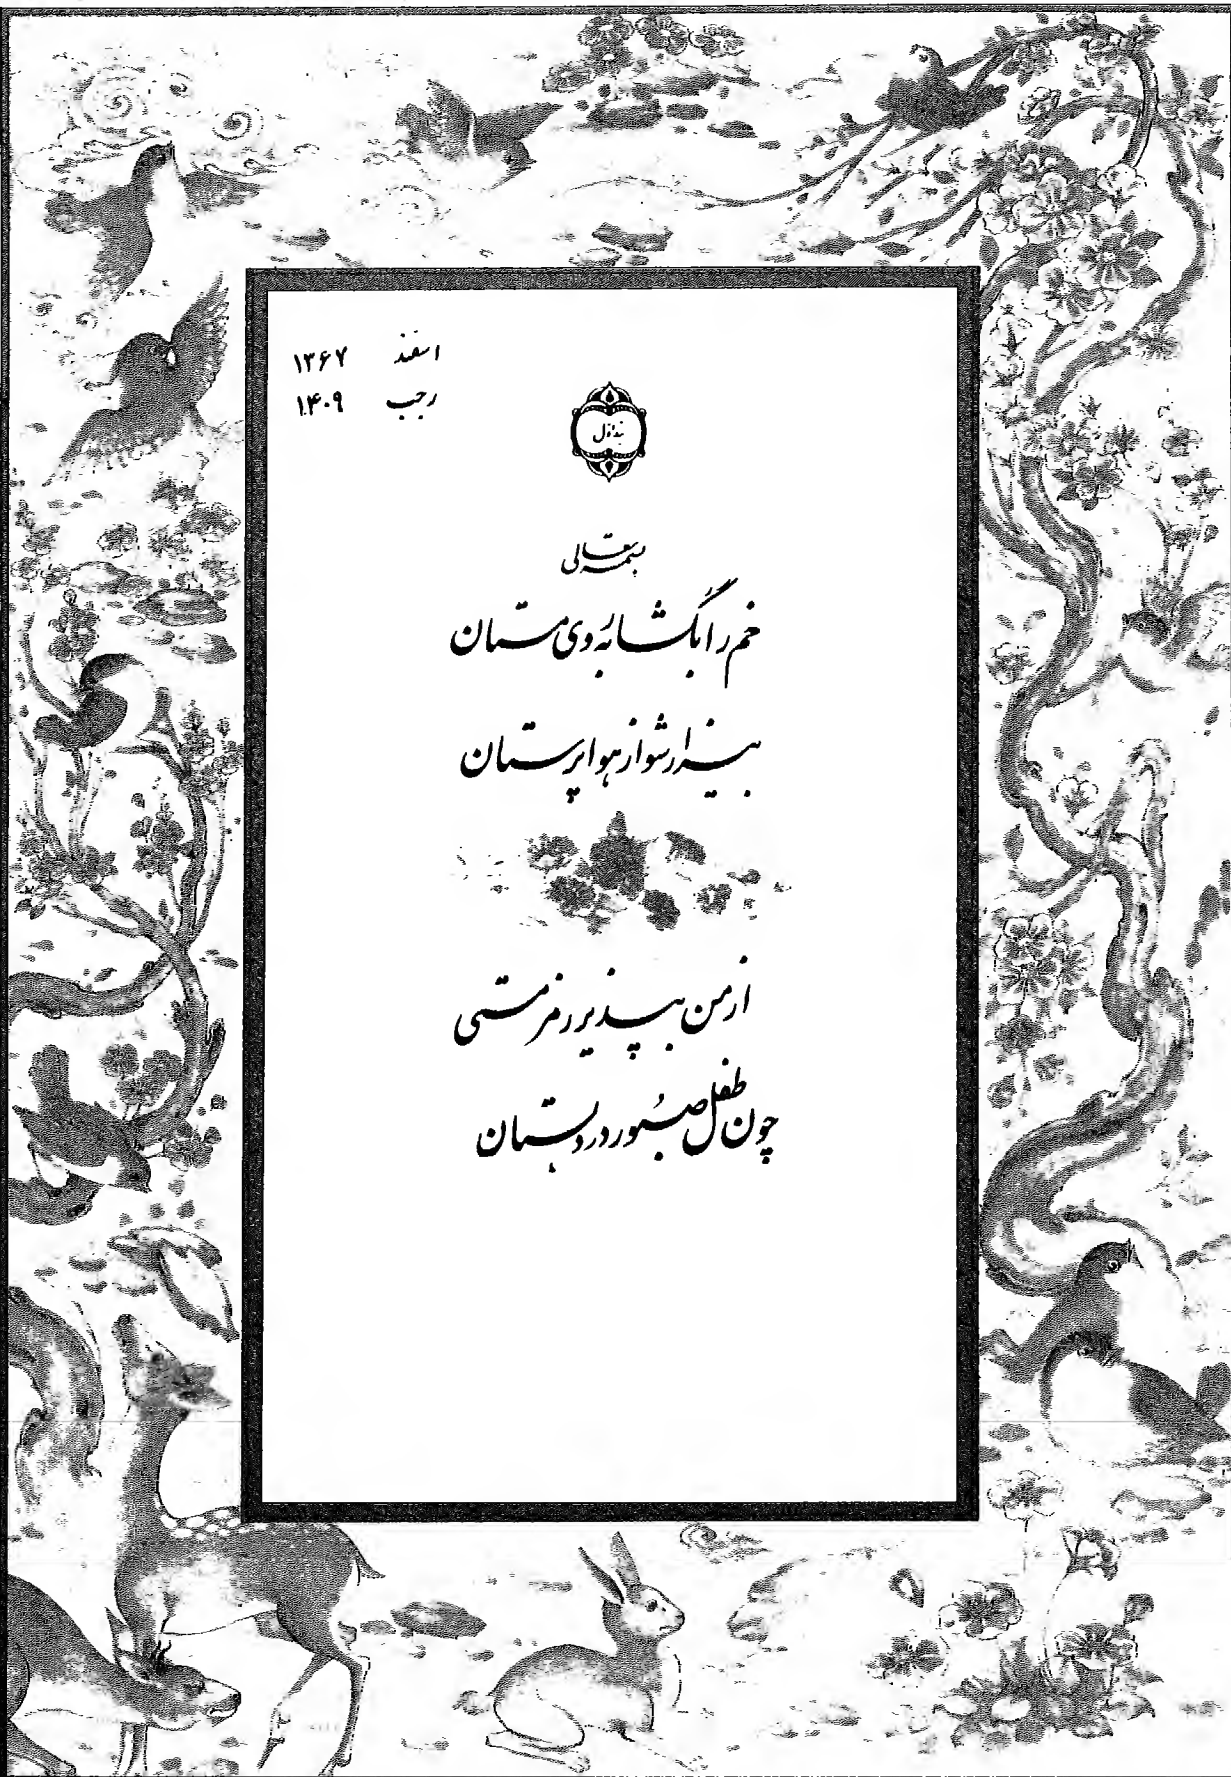 اسفند ۱۳۶۷
رجب ۱۴۰۹
بند اول
بسمه تعالی
خم را بگشا به روی مستان
بیزار شو از هواپرستان
از من بپذیر رمز مستی
چون طفل صبور در دبستان